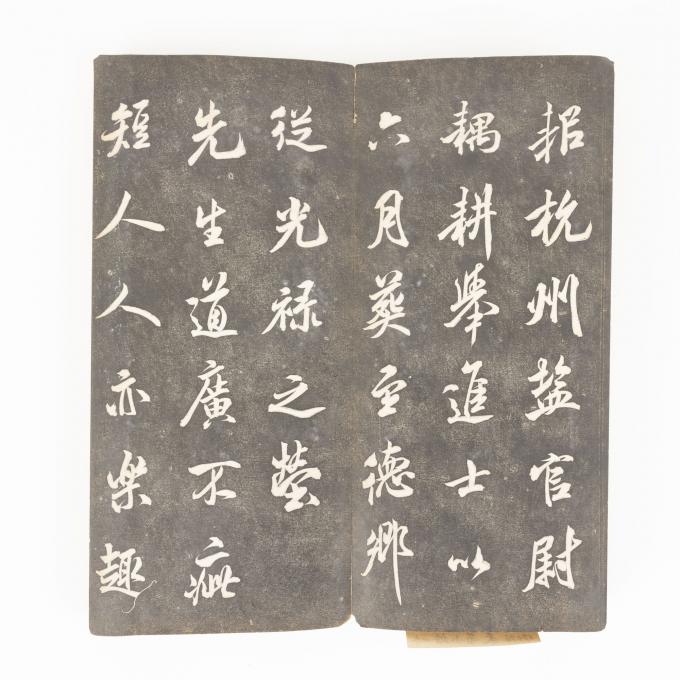 耜杭州鹽官尉
耦耕舉進士以
六月葬至德鄉
從光祿之塋
先生道廣不疵
短人人亦樂趣